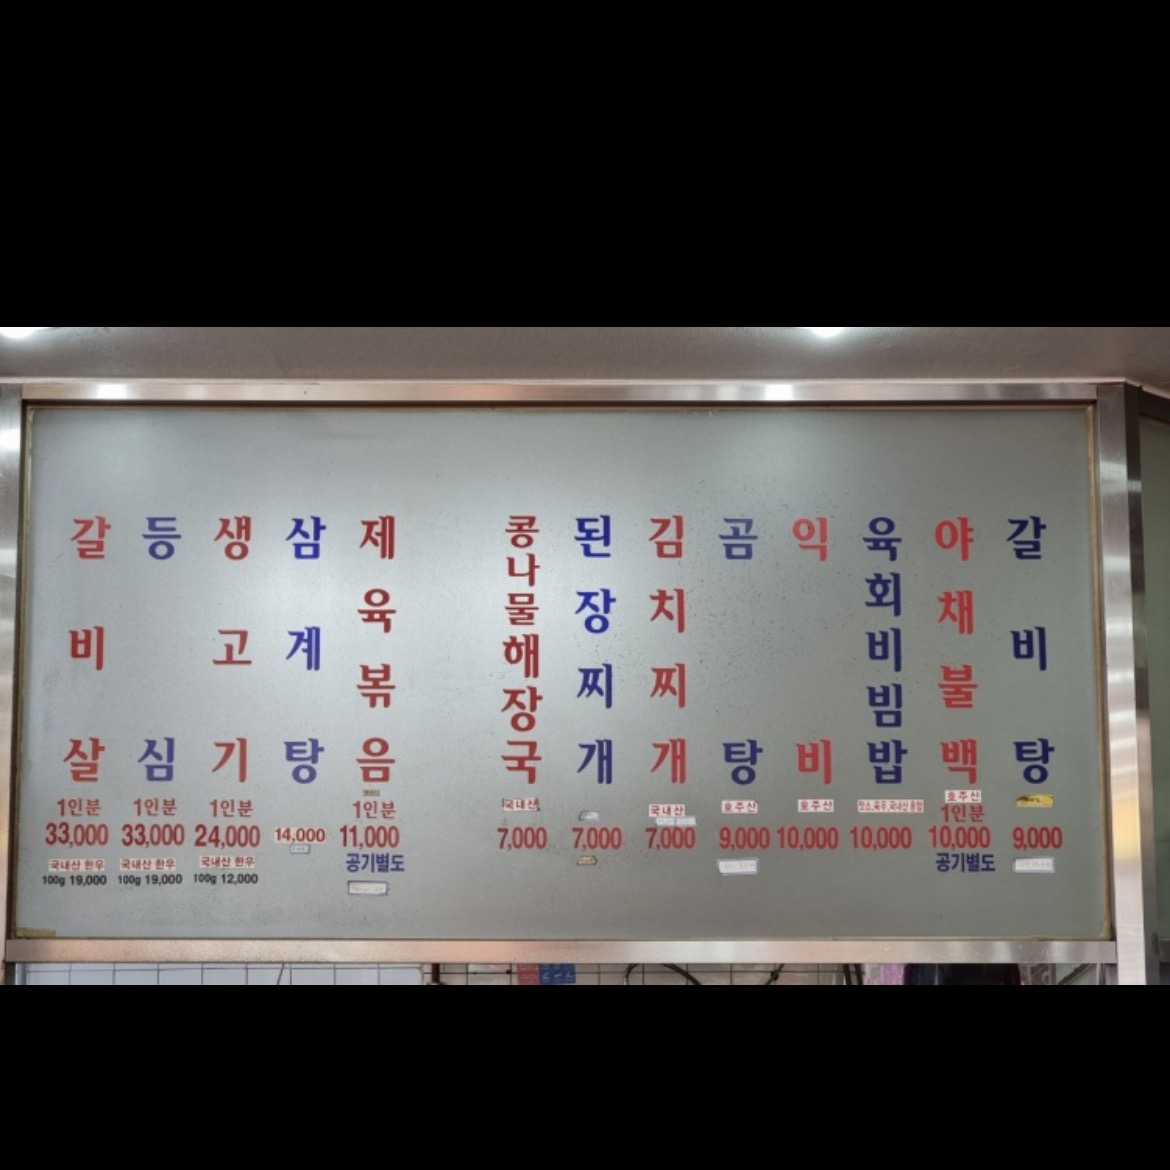 갈비살
1인분
33,000
국내산 한우
100g 19,000
등심
1인분
33,000
국내산 한우
100g 19,000
생고기
1인분
24,000
국내산 한우
100g 12,000
삼계탕
14,000
제육볶음
1인분
11,000
공기별도
콩나물해장국
국내산
7,000
된장찌개
7,000
김치찌개
국내산
7,000
곰탕
호주산
9,000
익비
호주산
10,000
육회비빔밥
10,000
야채불백
호주산
1인분
10,000
공기별도
갈비탕
9,000